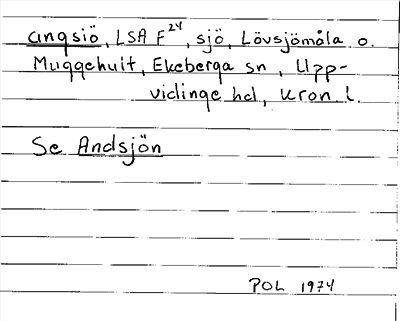 angsiö, LSA F24, sjö, Lövsjömåla o.
Muggehult, Ekeberga sn, Upp-
vidinge hd, Kron l.
Se Andsjön
POL 1974